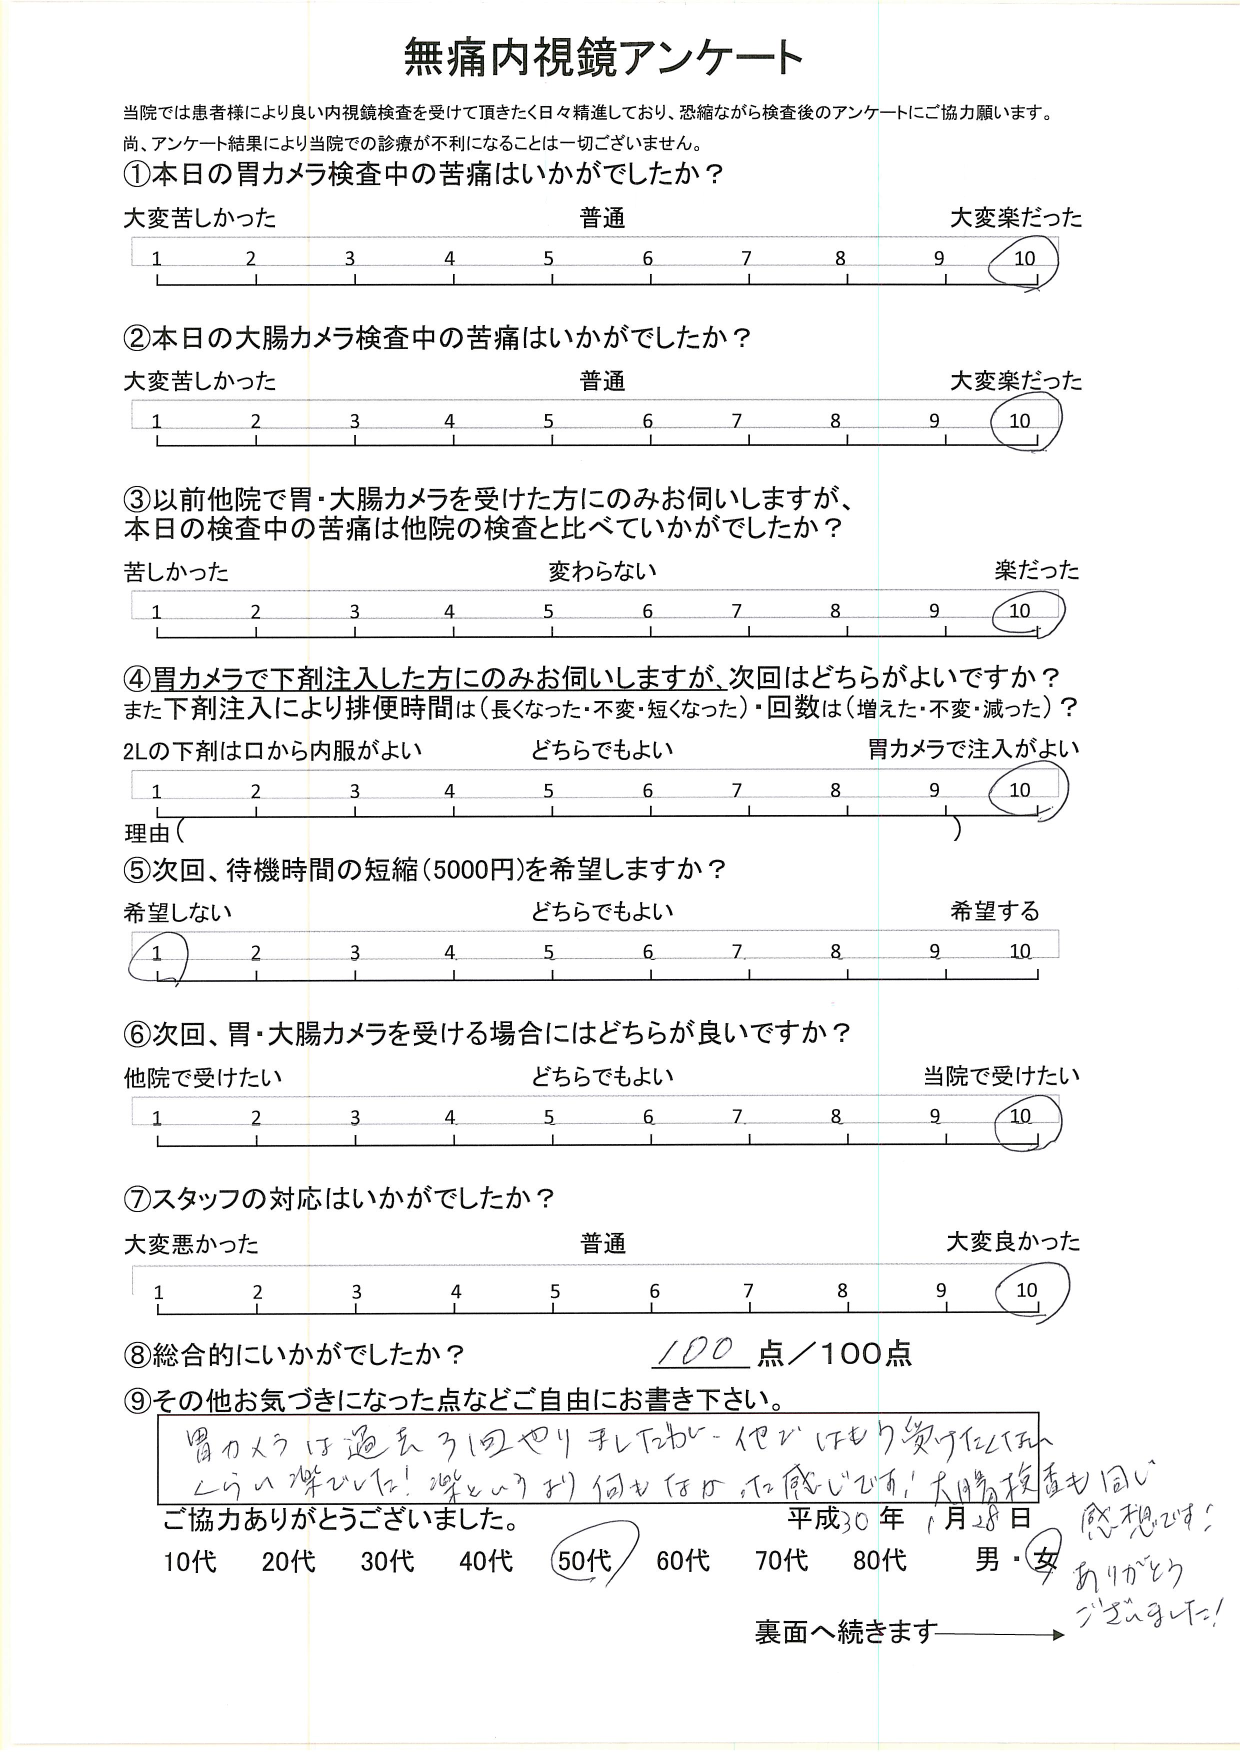 無痛内視鏡アンケート
当院では患者様により良い内視鏡検査を受けて頂きたく日々精進しており、恐縮ながら検査後のアンケートにご協力願います。
尚、アンケート結果により当院での診療が不利になることは一切ございません。
①本日の胃カメラ検査中の苦痛はいかがでしたか？
大変苦しかった 普通 大変楽だった
1 2 3 4 5 6 7 8 9 10
②本日の大腸カメラ検査中の苦痛はいかがでしたか？
大変苦しかった 普通 大変楽だった
1 2 3 4 5 6 7 8 9 10
③以前他院で胃・大腸カメラを受けた方にのみお伺いしますが、
本日の検査中の苦痛は他院の検査と比べていかがでしたか？
苦しかった 変わらない 楽だった
1 2 3 4 5 6 7 8 9 10
④胃カメラで下剤注入した方にのみお伺いしますが、次回はどちらがよいですか？
また下剤注入により排便時間は（長くなった・不変・短くなった）・回数は（増えた・不変・減った）？
2Lの下剤は口から内服がよい どちらでもよい 胃カメラで注入がよい
1 2 3 4 5 6 7 8 9 10
理由（ ）
⑤次回、待機時間の短縮（5000円）を希望しますか？
希望しない どちらでもよい 希望する
1 2 3 4 5 6 7 8 9 10
⑥次回、胃・大腸カメラを受ける場合にはどちらが良いですか？
他院で受けたい どちらでもよい 当院で受けたい
1 2 3 4 5 6 7 8 9 10
⑦スタッフの対応はいかがでしたか？
大変悪かった 普通 大変良かった
1 2 3 4 5 6 7 8 9 10
⑧総合的にいかがでしたか？ 100 点／100点
⑨その他お気づきになった点などご自由にお書き下さい。
胃カメラは過去3回やりましたが、他ではもう受けたくない
くらい楽でした！楽というより何もなかった感じです！大腸検査も同じ
感想です！
ありがとう
ございました！
ご協力ありがとうございました。 平成30年 1月28日
10代 20代 30代 40代 50代 60代 70代 80代 男・女
裏面へ続きます